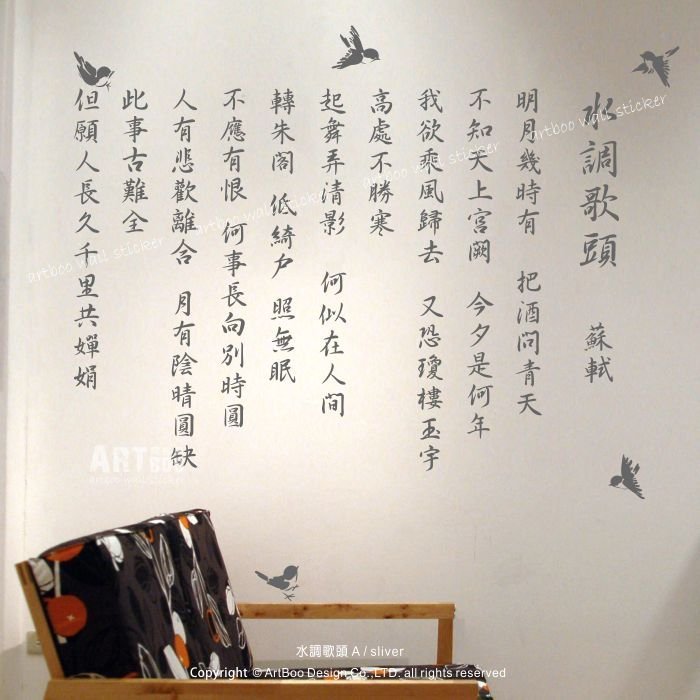 水調歌頭 蘇軾
明月幾時有 把酒問青天
不知天上宮闕 今夕是何年
我欲乘風歸去 又恐瓊樓玉宇
高處不勝寒
起舞弄清影 何似在人間
轉朱閣 低綺户 照無眠
不應有恨 何事長向別時圓
人有悲歡離合 月有陰晴圓缺
此事古難全
但願人長久千里共嬋娟
artboo wall sticker
artboo wall sticker
artboo wall sticker
artboo wall sticker
ARTBOO
artboo wall sticker
水調歌頭 A / sliver
Copyright © ArtBoo Design Co.,LTD. all rights reserved